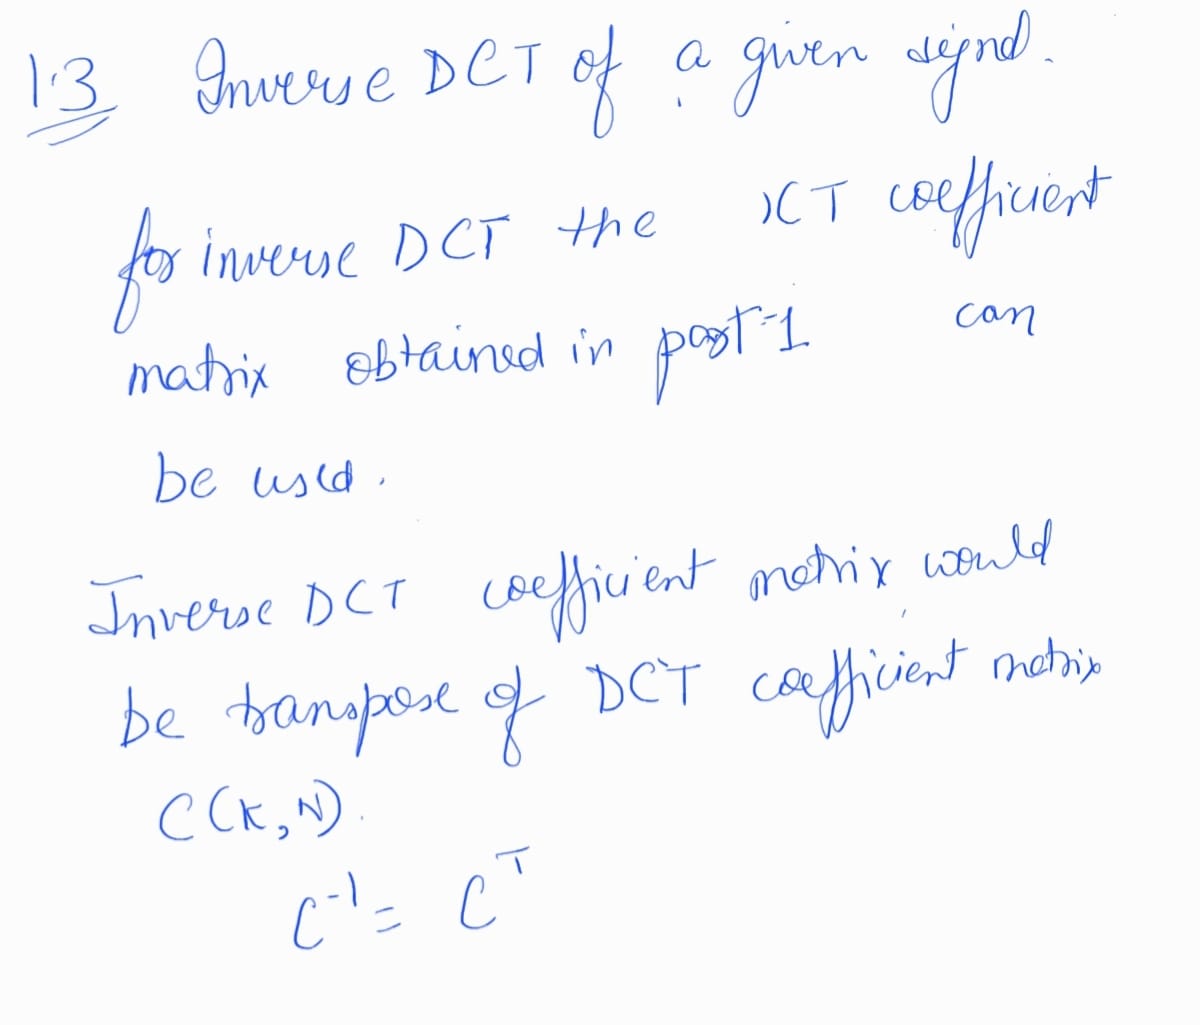 1.3 Inverse DCT of a given signal.
for inverse DCT the DCT coefficient
matrix obtained in part-1 can
be used.
Inverse DCT coefficient matrix would
be transpose of DCT coefficient matrix
C(K,N).
C⁻¹ = Cᵀ